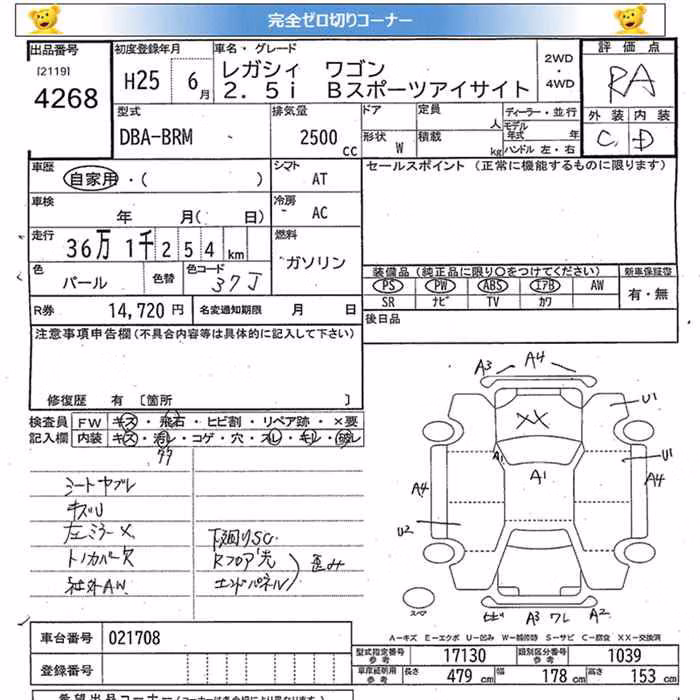 完全ゼロ切りコーナー
出品番号 初度登録年月 車名・グレード 2WD・4WD 評価点
[2119] 4268 H25 6月 レガシィ ワゴン RA
2.5i Bスポーツアイサイト
外装 内装
C D
型式 排気量 ドア 定員 人 ディーラー・並行
DBA-BRM 2500cc 形状 W 積載 kg モデル年式 年
ハンドル 左・右
車歴 自家用・( ) シフト AT セールスポイント (正常に機能するものに限ります)
車検 年 月( 日) 冷房 AC
走行 36万 1千 254 km 燃料 ガソリン
色 パール 色替 色コード 37J
装備品 (純正品に限り○をつけてください) 新車保証書
PS PW ABS エアB AW 有・無
SR ナビ TV カワ
R券 14,720 円 名変通知期限 月 日 後日品
注意事項申告欄 (不具合内容等は具体的に記入して下さい)
修復歴 有 [箇所 ]
検査員 FW キズ・飛石・ヒビ割・リペア跡・×要
記入欄 内装 キズ・汚レ・コゲ・穴・スレ・キレ・破レ
シートヤブレ
キズU
左ミラーX
トノカバー欠
社外AW
下廻りSC
Rフロア先
エンドパネル
歪み
A3 A4
U1
XX
A1 A1 U1
A4 A4
U2
スペア
ヒビ A3 ワレ A2
A-キズ E-エクボ U-凹み W-補修跡 S-サビ C-腐食 XX-交換済
車台番号 021708 型式指定番号 参考 17130 類別区分番号 参考 1039
登録番号 車庫証明用 参考 長さ 479 cm 幅 178 cm 高さ 153 cm
希望出品コーナー